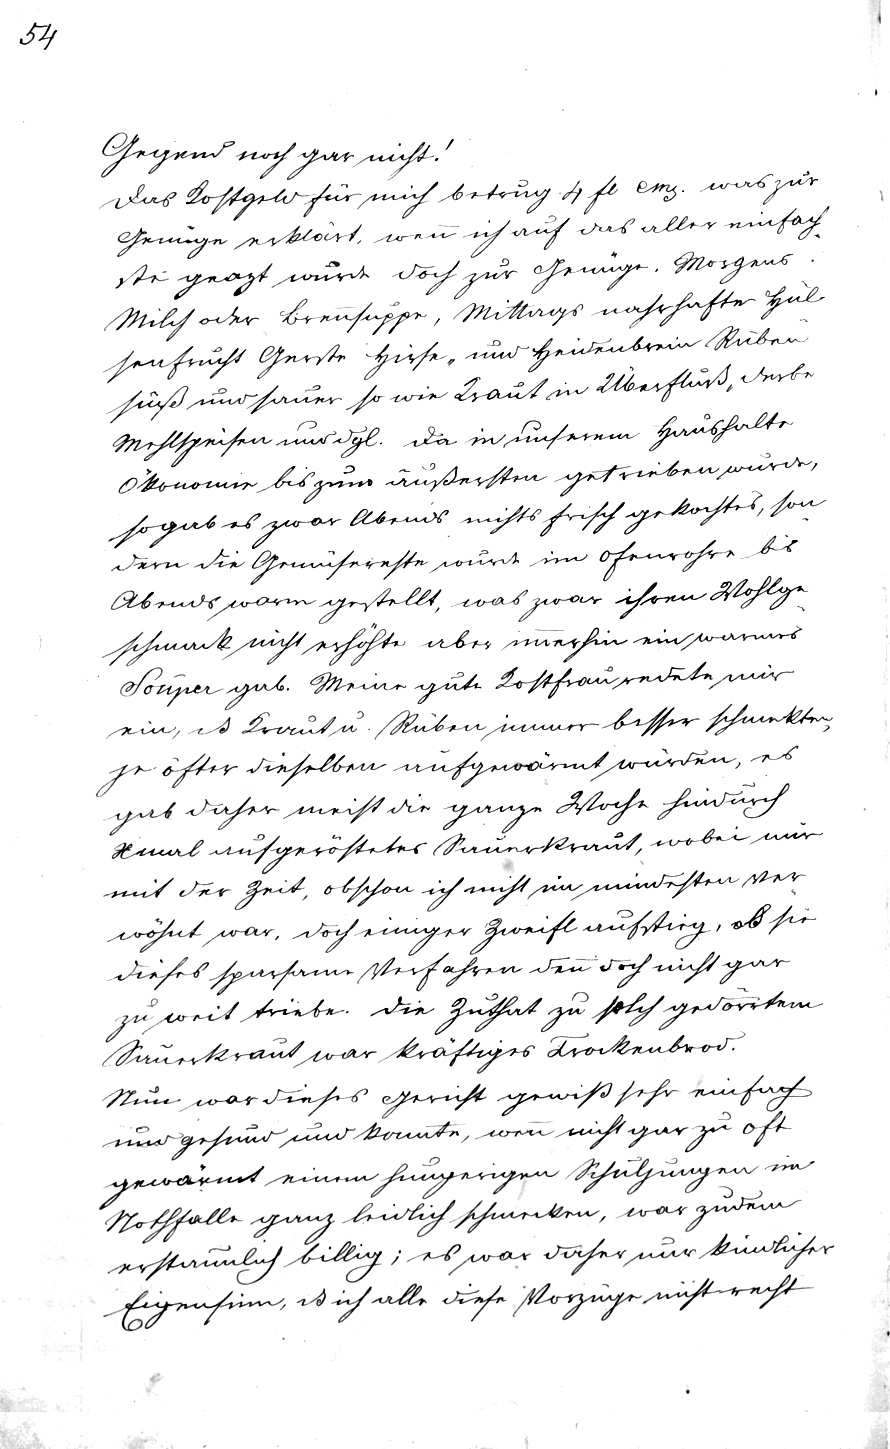 54
Gegend noch gar nicht!
Das Kostgeld für mich betrug 4 fl CMz. was zur
Genüge erklärt, wen̄ ich auf das aller einfach-
ste geazt wurde doch zur Genüge. Morgens
Milch oder Bren̄suppe, Mittags nahrhafte Hül-
senfrucht Gerste Hirse, und Heidenbrein Rüben
süß und sauer so wie Kraut in Überfluß, derbe
Mehlspeisen und dgl. Da in unserem Haushalte
Ökonomie bis zum äußersten getrieben wurde,
so gab es zwar Abends nichts frisch gekochtes, son-
dern die Gemüsereste wurde im Ofenrohre bis
Abends warm gestellt, was zwar ihren Wohlge-
schmack nicht erhöhte aber im̄erhin ein warmes
Souper gab. Meine gute Kostfrau redete mir
ein, ß Kraut u. Rüben immer besser schmekten,
je öfter dieselben aufgewärmt würden, es
gab daher meist die ganze Woche hindurch
Xmal aufgeröstetes Sauerkraut, wobei mir
mit der Zeit, obschon ich nicht im mindesten ver-
wöhnt war, doch einiger Zweifl aufstieg, ob sie
dieses sparsame Verfahren den̄ doch nicht gar
zu weit triebe. Die Zuthat zu solch gedörrtem
Sauerkraut war kräftiges Trockenbrod.
Nun war dieses Gericht gewiß sehr einfach
und gesund und konnte, wen̄ nicht gar zu oft
gewärmt einem hungerigen Schuljungen im
Nothfalle ganz leidlich schmecken, war zudem
erstaunlich billig; es war daher nur kindlicher
Eigensinn, ß ich alle diese Vorzüge nicht recht